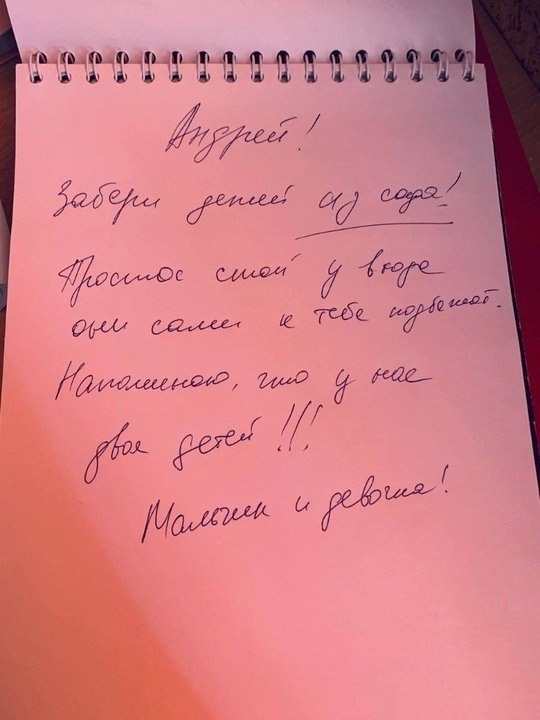 Андрей!
Забери детей из сада!
Просто стой у входа
они сами к тебе подбегут.
Напоминаю, что у нас
двое детей!!!
Мальчик и девочка!